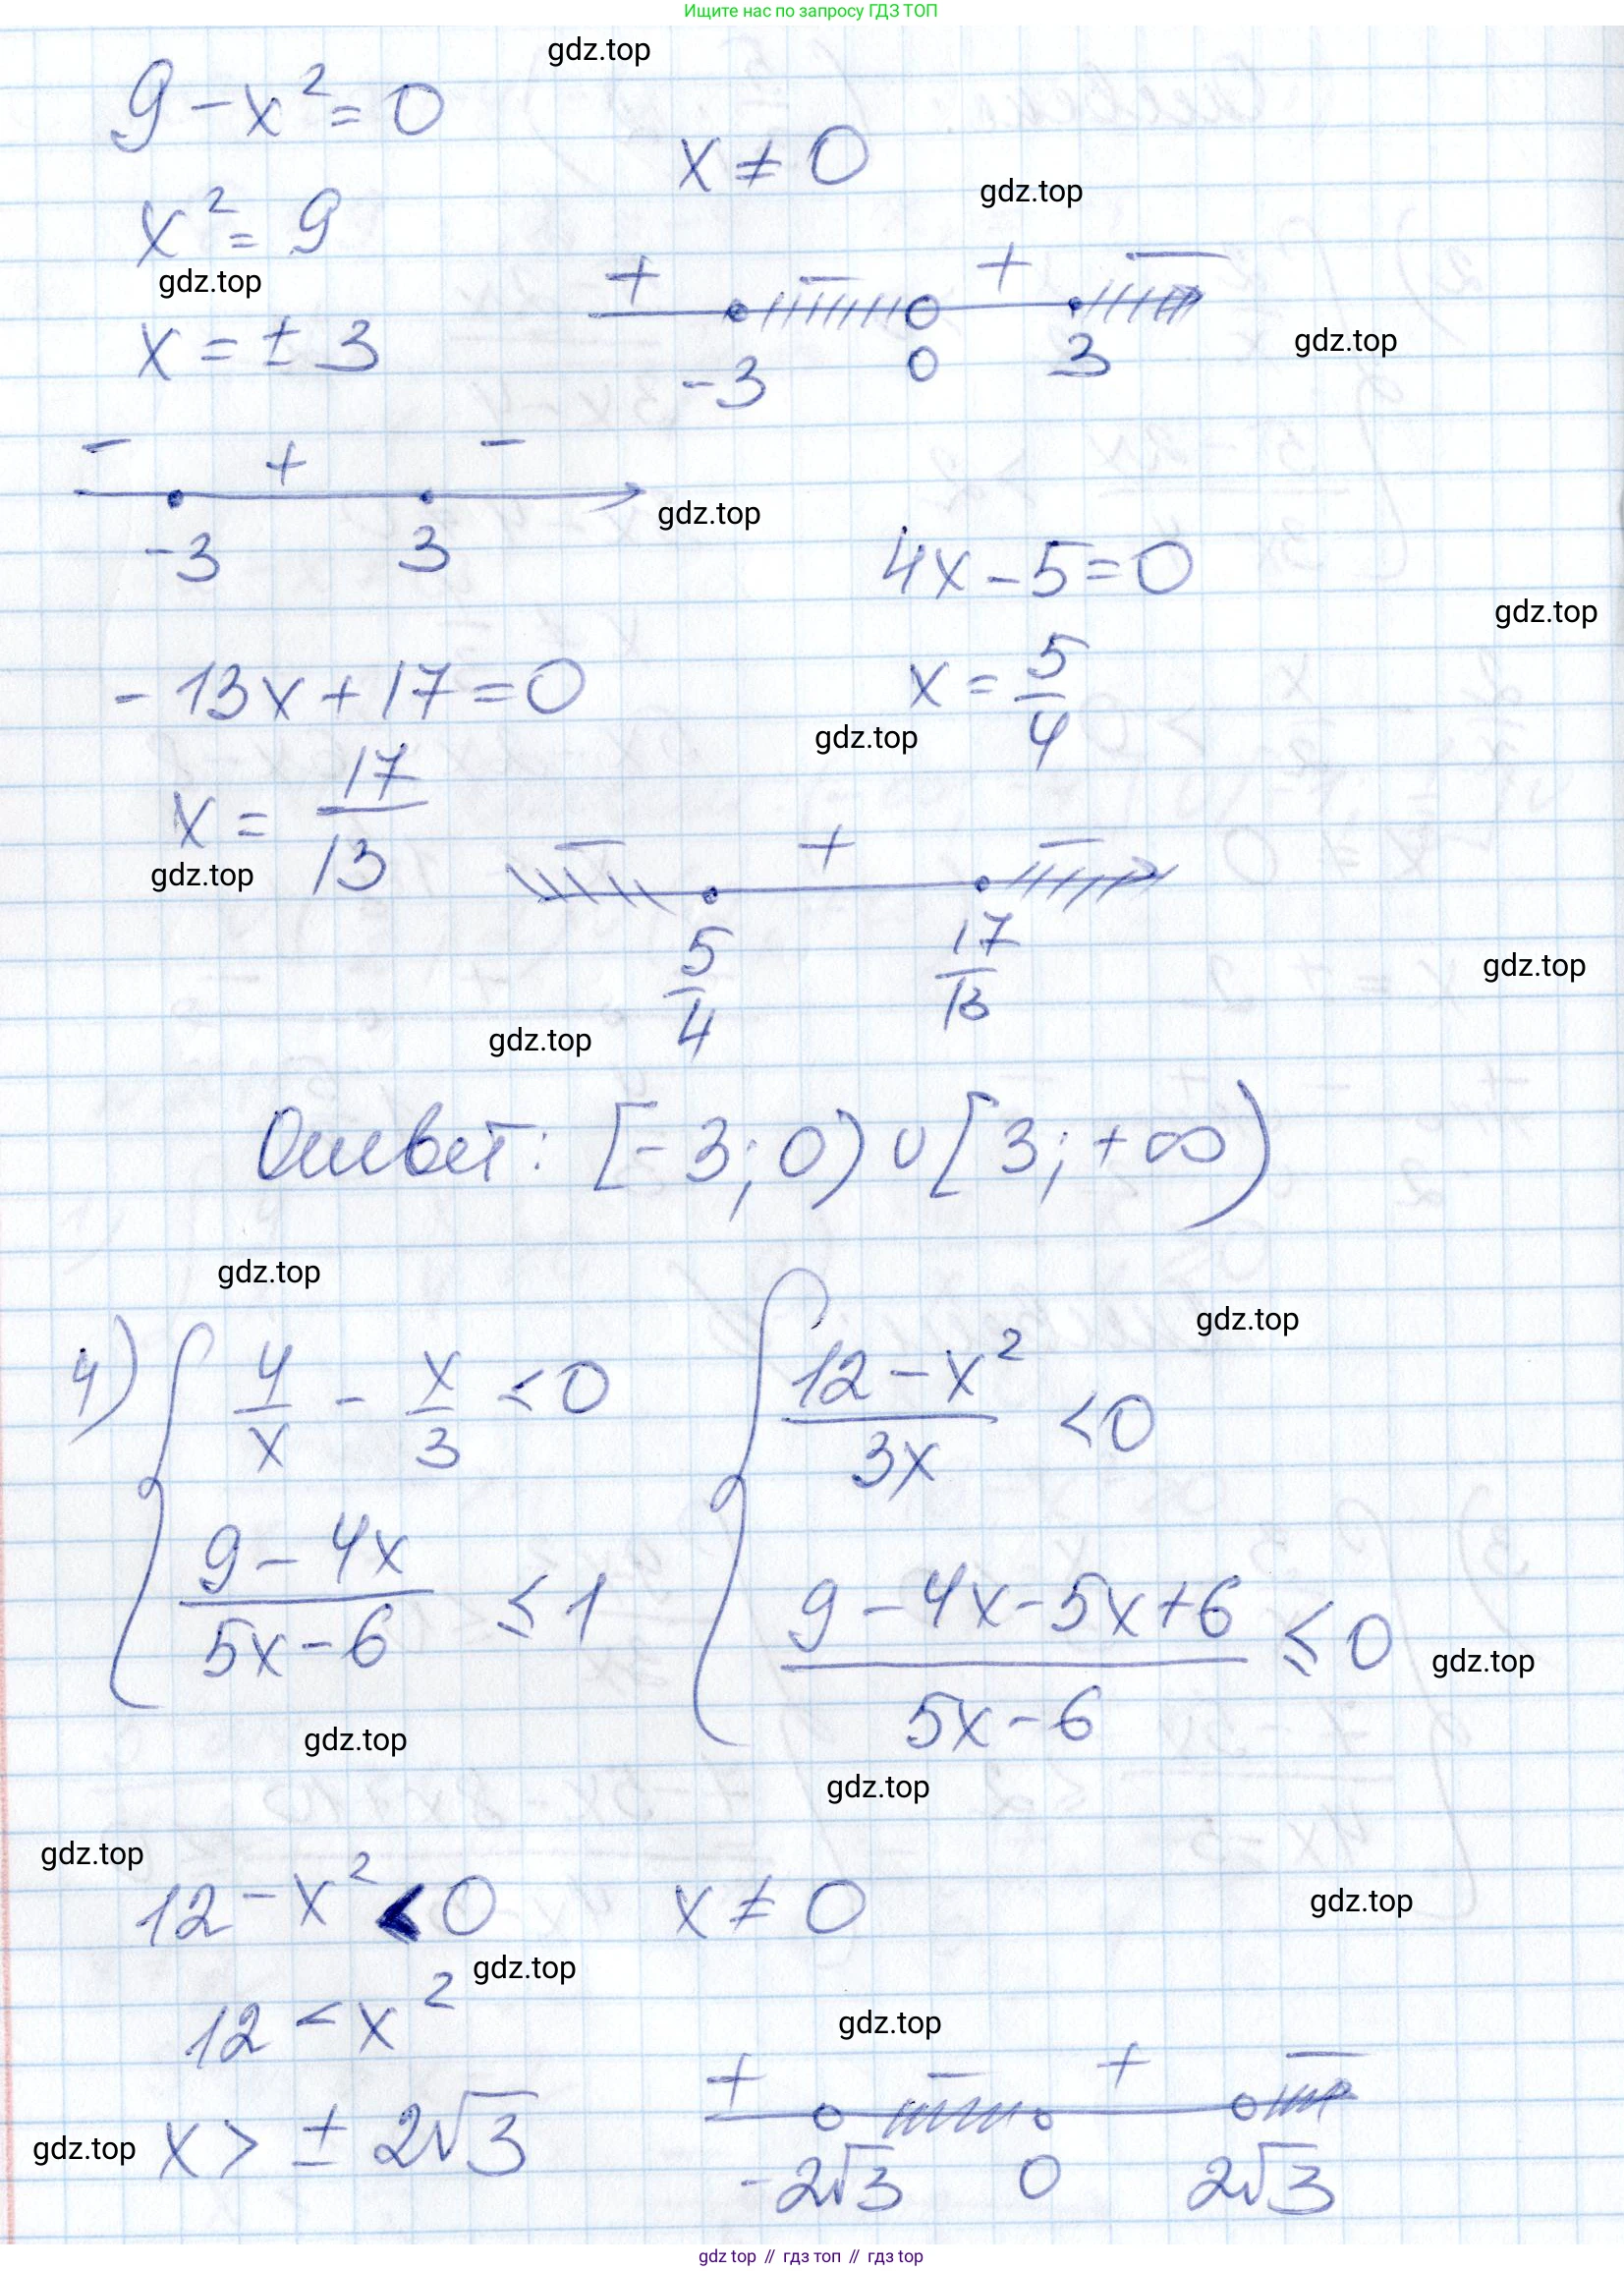 Ищите нас по запросу ГДЗ ТОП
gdz.top
9 - x² = 0
x ≠ 0
gdz.top
x² = 9
gdz.top
+ − + −
x = ± 3
-3 0 3
gdz.top
− + −
-3 3
gdz.top
4x - 5 = 0
gdz.top
- 13x + 17 = 0
x = 5/4
gdz.top
x = 17/13
gdz.top
− + −
5/4 17/13
gdz.top
gdz.top
Ответ: [-3; 0) ∪ [3; +∞)
gdz.top
gdz.top
4) { 4/x - x/3 < 0 { (12 - x²)/3x < 0
(9 - 4x)/(5x - 6) ≤ 1 (9 - 4x - 5x + 6)/(5x - 6) ≤ 0
gdz.top
gdz.top
gdz.top
gdz.top
12 - x² < 0 x ≠ 0
gdz.top
gdz.top
12 < x²
gdz.top
+ − + −
x > ± 2√3
gdz.top
-2√3 0 2√3
gdz top // гдз топ // гдз top